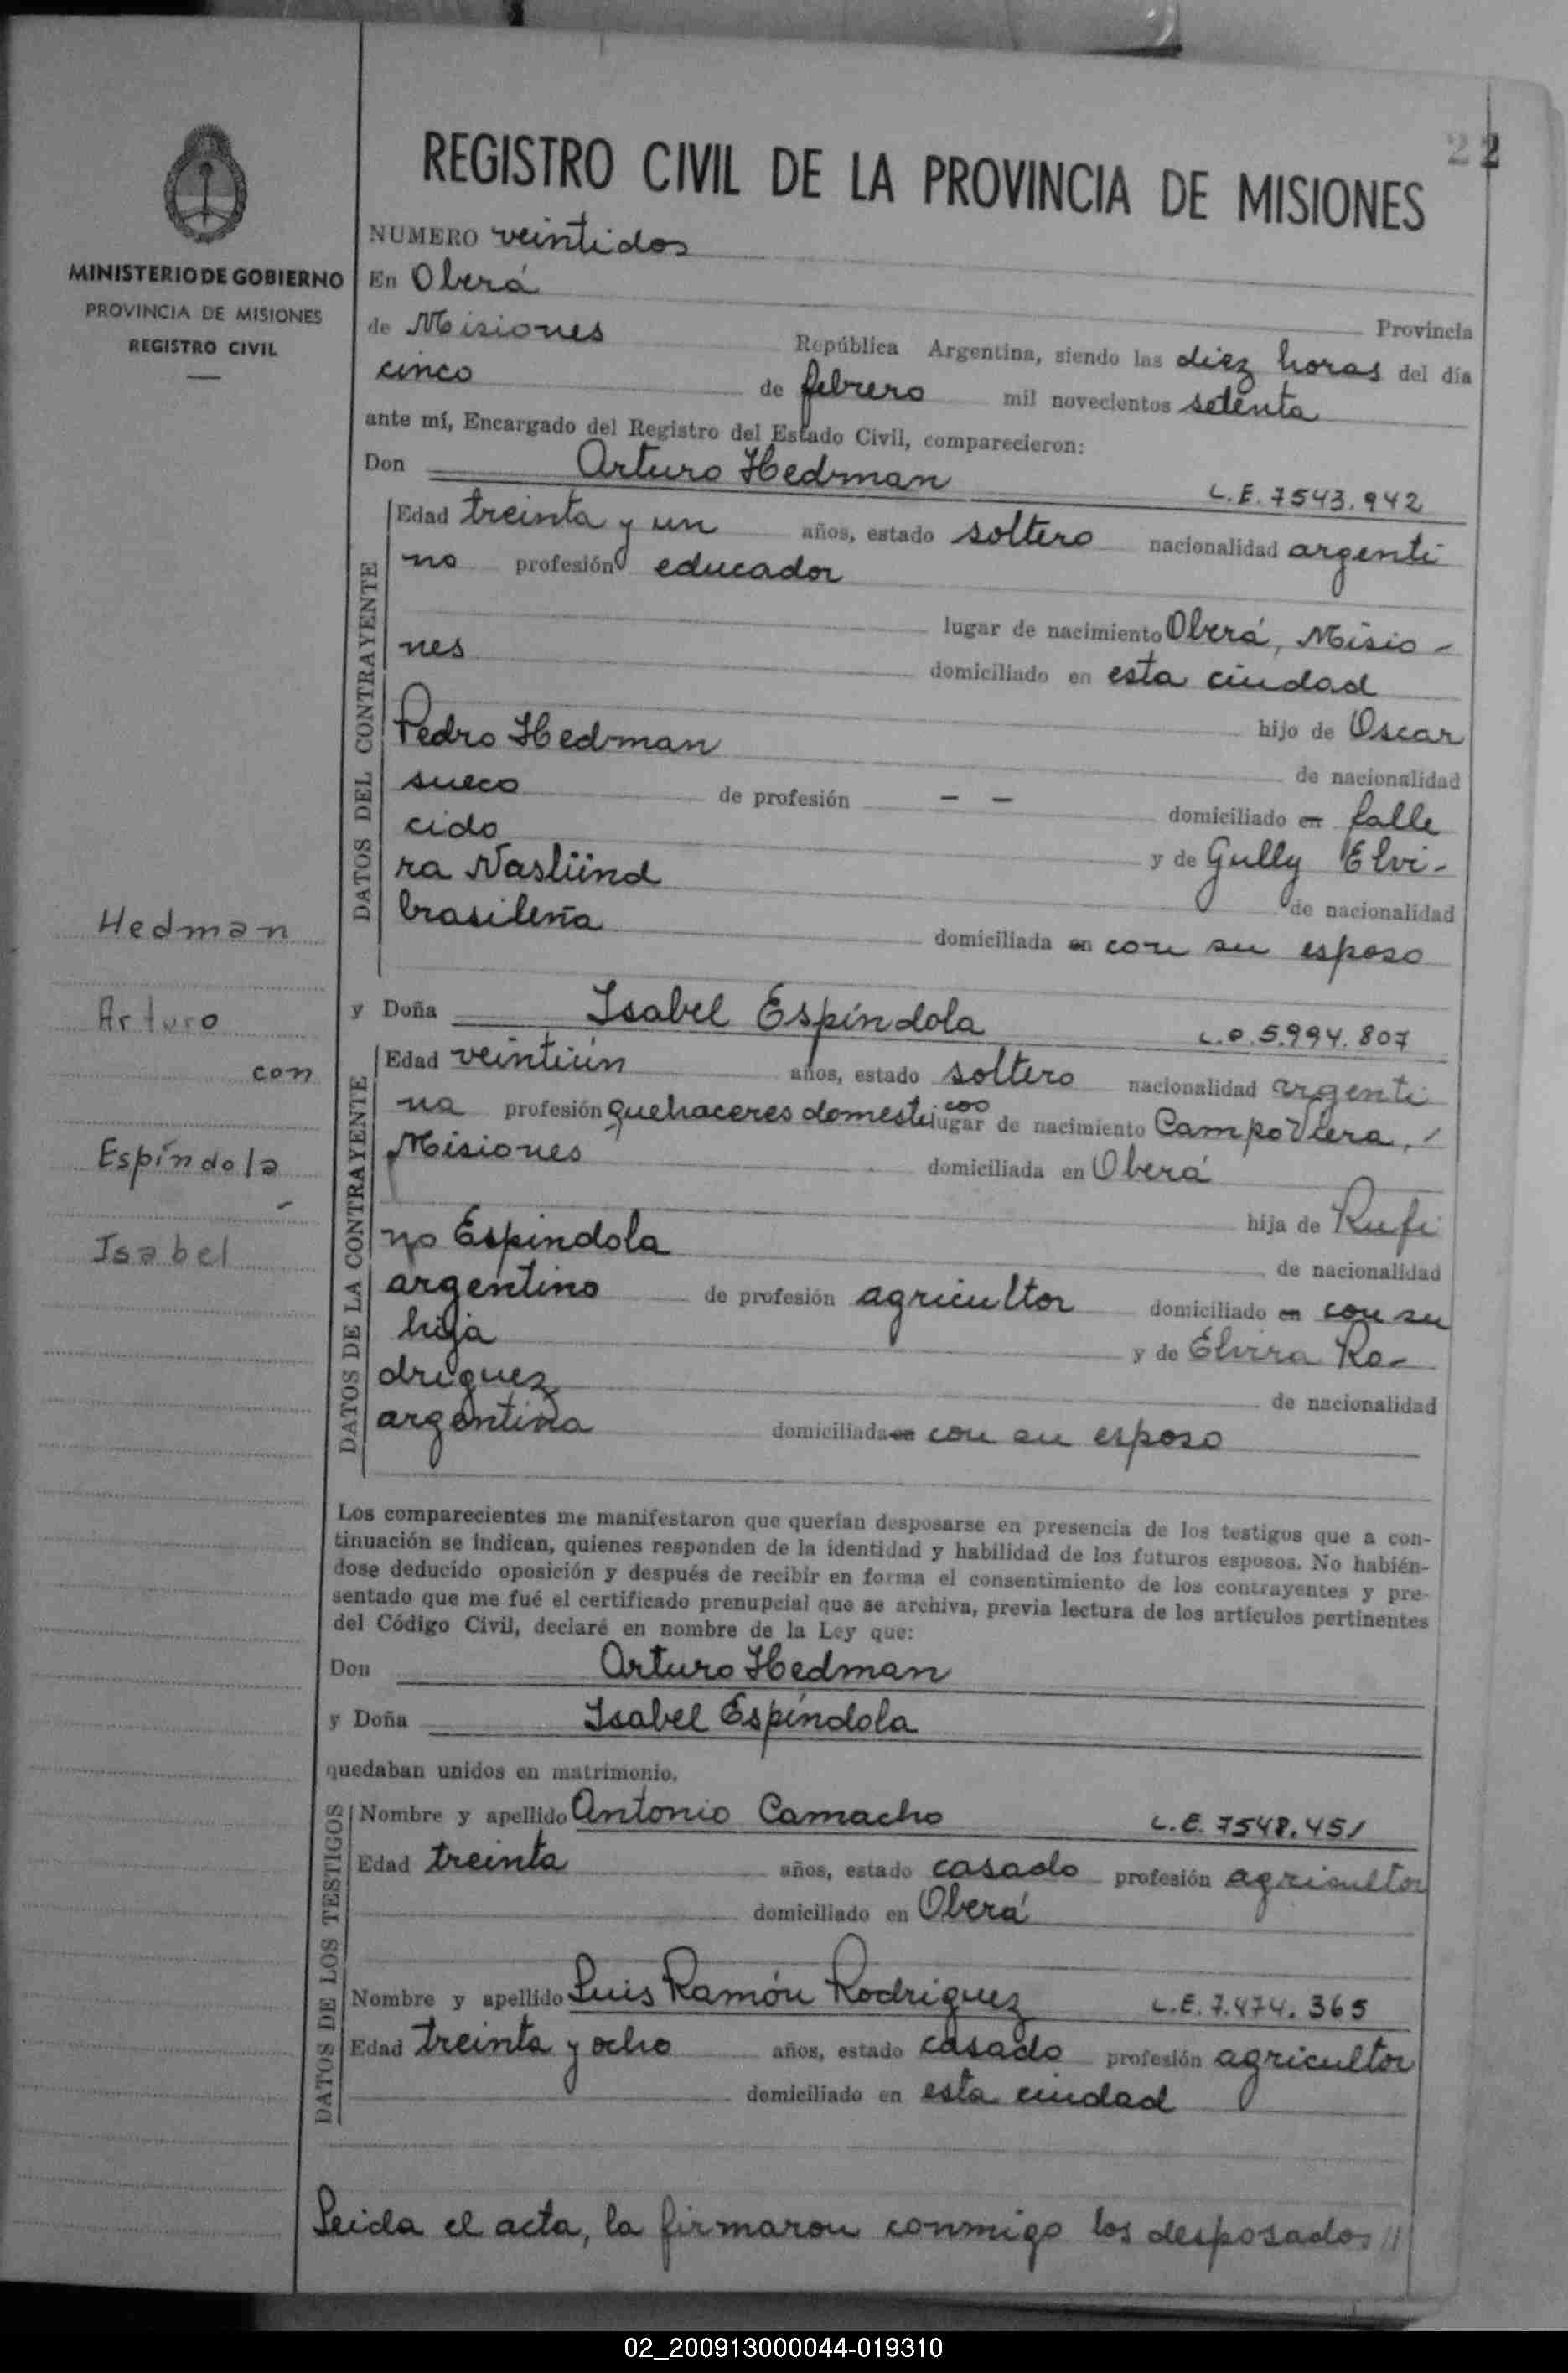 22
REGISTRO CIVIL DE LA PROVINCIA DE MISIONES
MINISTERIO DE GOBIERNO
PROVINCIA DE MISIONES
REGISTRO CIVIL
NUMERO veintidos
En Oberá Provincia
de Misiones República Argentina, siendo las diez horas del día
cinco de febrero mil novecientos setenta
ante mí, Encargado del Registro del Estado Civil, comparecieron:
Don Arturo Hedman L.E. 7543.942
DATOS DEL CONTRAYENTE
Edad treinta y un años, estado soltero nacionalidad argenti
no profesión educador
lugar de nacimiento Oberá, Misio -
nes domiciliado en esta ciudad
hijo de Oscar
Pedro Hedman de nacionalidad
sueco de profesión - - domiciliado en falle
cido y de Gully Elvi-
ra Naslünd de nacionalidad
brasileña domiciliada en con su esposo
Hedman
Arturo
con
Espíndola
-
Isabel
y Doña Isabel Espíndola L.C. 5.994.807
DATOS DE LA CONTRAYENTE
Edad veintiún años, estado soltero nacionalidad argenti
na profesión quehaceres domesticos lugar de nacimiento Campo Viera,
Misiones domiciliada en Oberá
hija de Rufi
no Espíndola de nacionalidad
argentino de profesión agricultor domiciliado en con su
hija y de Elvira Ro-
driguez de nacionalidad
argentina domiciliada en con su esposo
Los comparecientes me manifestaron que querían desposarse en presencia de los testigos que a con-
tinuación se indican, quienes responden de la identidad y habilidad de los futuros esposos. No habién-
dose deducido oposición y después de recibir en forma el consentimiento de los contrayentes y pre-
sentado que me fué el certificado prenupcial que se archiva, previa lectura de los artículos pertinentes
del Código Civil, declaré en nombre de la Ley que:
Don Arturo Hedman
y Doña Isabel Espíndola
quedaban unidos en matrimonio.
DATOS DE LOS TESTIGOS
Nombre y apellido Antonio Camacho L.E. 7548.451
Edad treinta años, estado casado profesión agricultor
domiciliado en Oberá
Nombre y apellido Luis Ramón Rodriguez L.E. 7.474.365
Edad treinta y ocho años, estado casado profesión agricultor
domiciliado en esta ciudad
Leida el acta, la firmaron conmigo los desposados //
02_200913000044-019310